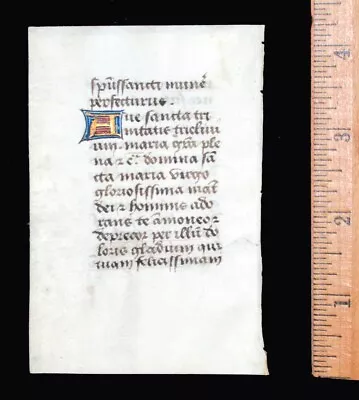 sp̄ussancti muner̄
perfecturus.
Aue sancta tri
nitatis tricliu
um. maria gr̄a ple
na ⁊ c̄. domina sā
cta maria virgo
gloriosissima mat̄
dei ⁊ hominis ado
rans te amoneo ⁊
deprecor per illū do
loris gladium qui
tuam felicissimam
1
2
3